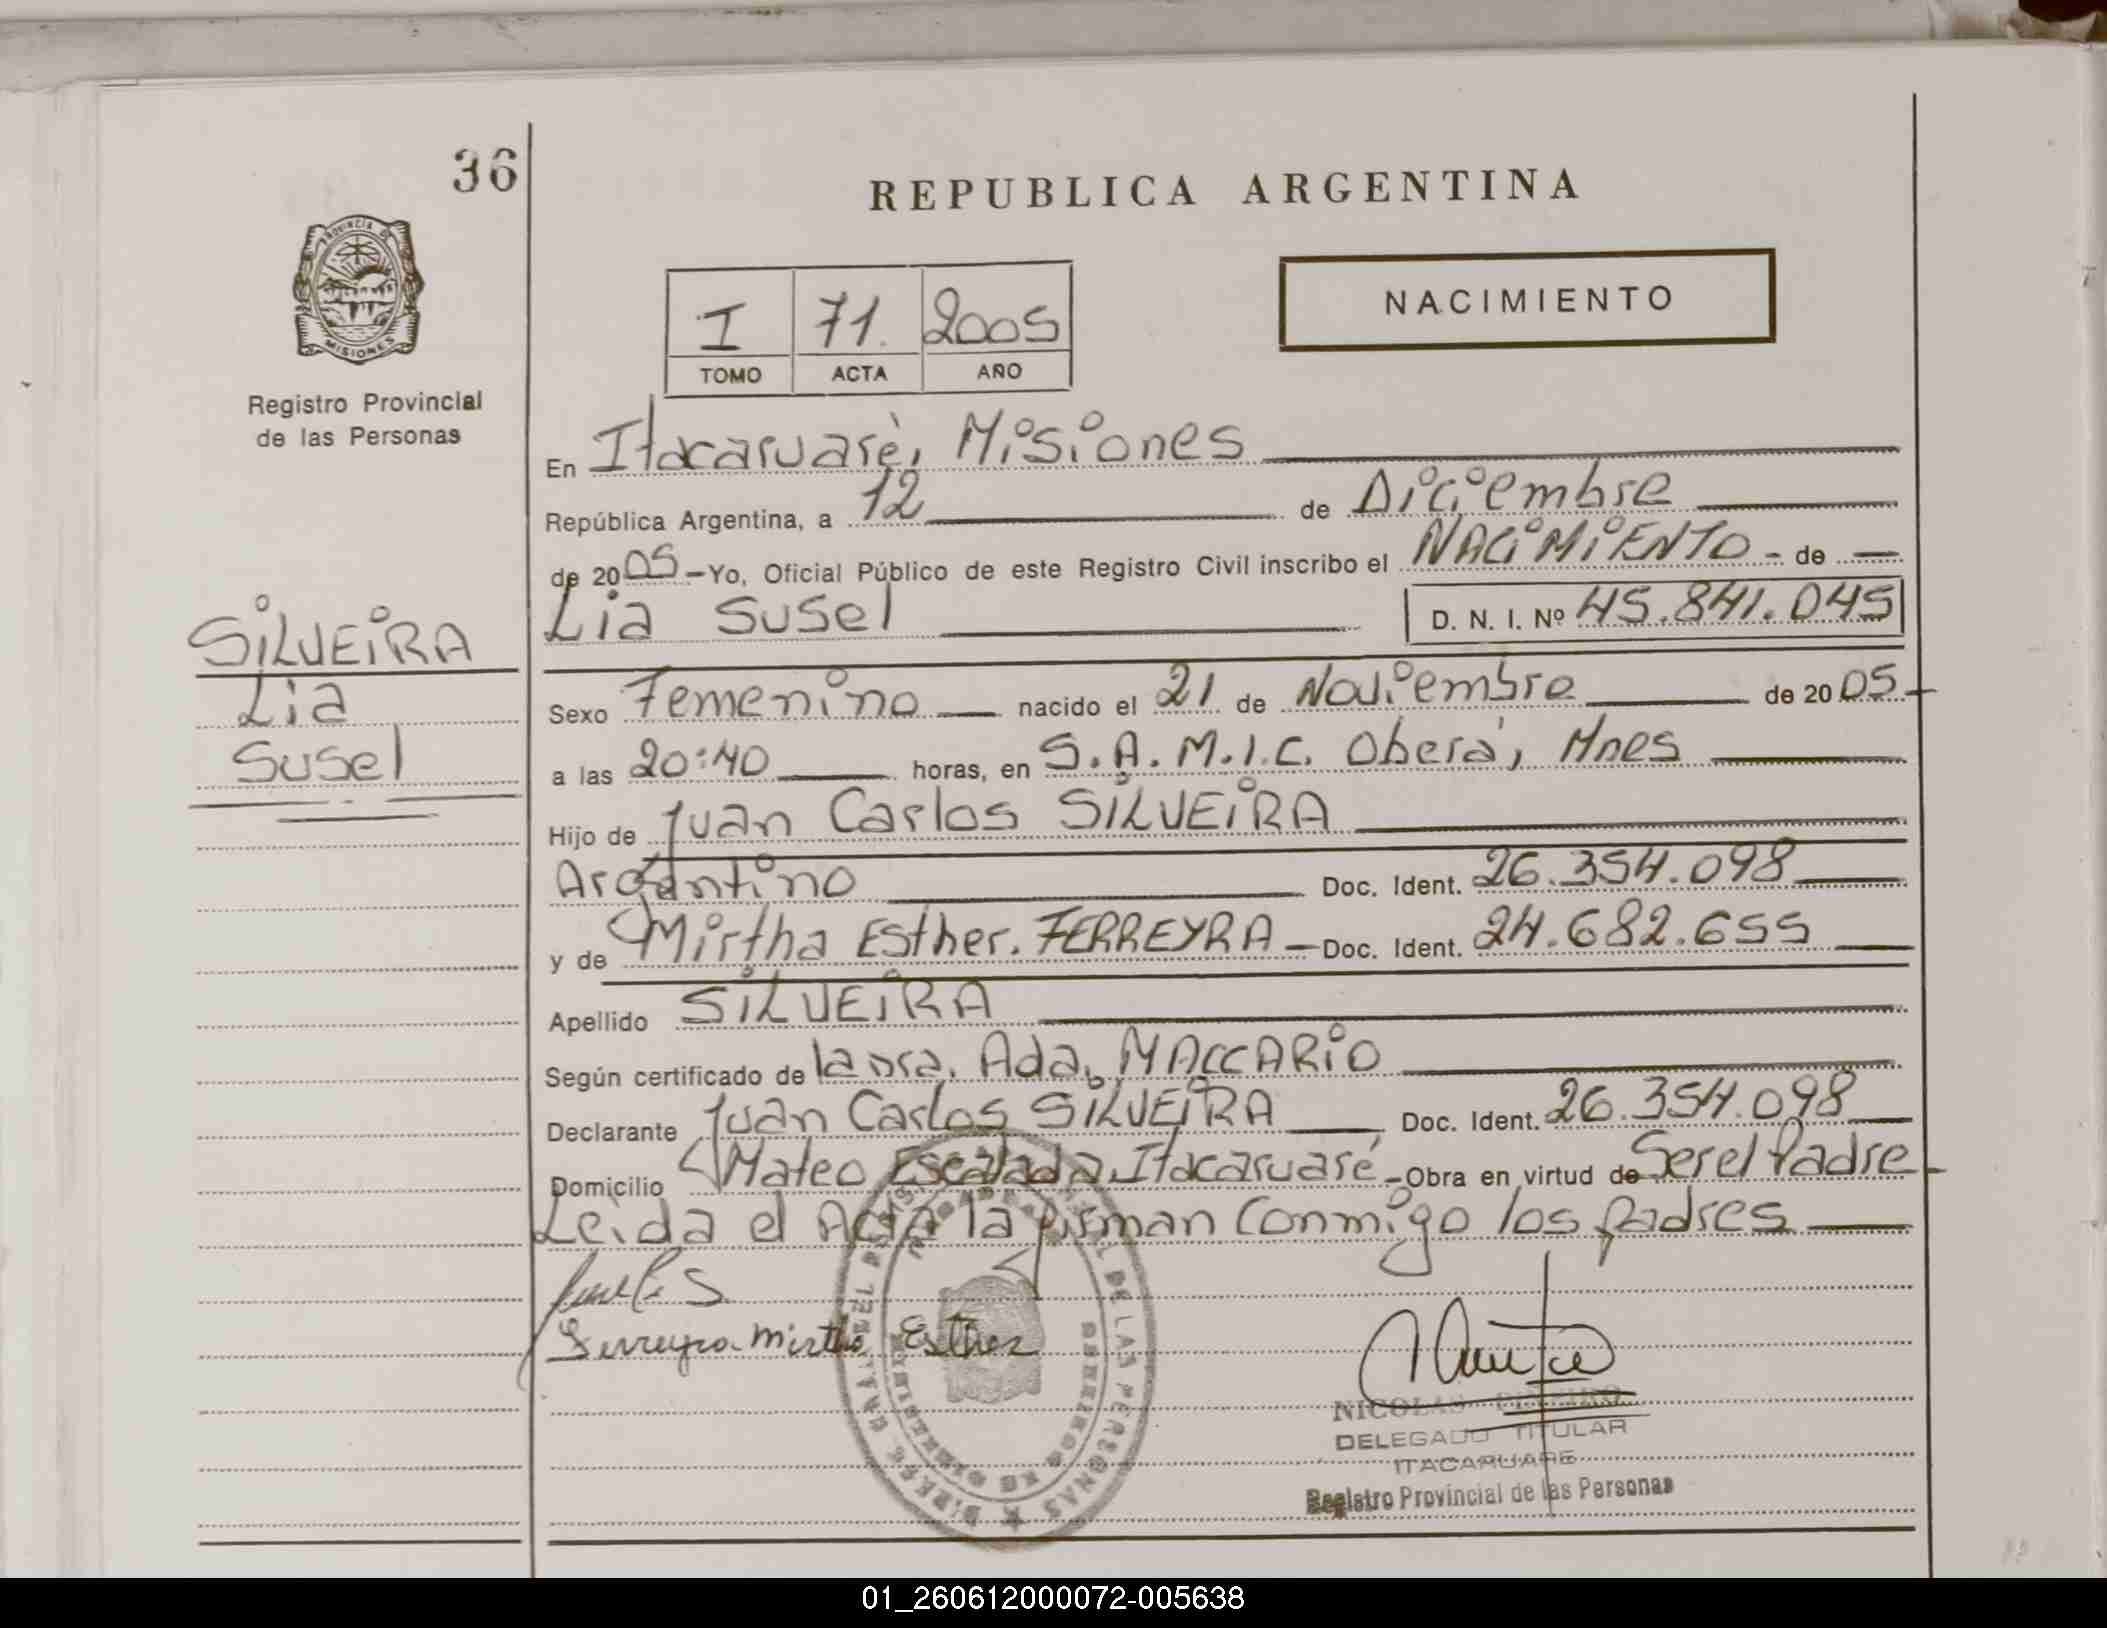 36
REPUBLICA ARGENTINA
PROVINCIA DE
MISIONES
Registro Provincial
de las Personas
I 71. 2005
TOMO ACTA AÑO
NACIMIENTO
En Itacaruaré, Misiones
República Argentina, a 12 de Diciembre
de 2005 - Yo, Oficial Público de este Registro Civil inscribo el NACIMIENTO - de
Lia Susel D. N. I. Nº 45.841.045
SILVEIRA
Lia
Susel
Sexo Femenino nacido el 21 de Noviembre de 2005
a las 20:40 horas, en S.A.M.I.C. Oberá, Mnes
Hijo de Juan Carlos SILVEIRA
Argentino Doc. Ident. 26.354.098
y de Mirtha Esther. FERREYRA Doc. Ident. 24.682.655
Apellido SILVEIRA
Según certificado de la Dra. Ada. MACCARIO
Declarante Juan Carlos SILVEIRA Doc. Ident. 26.354.098
Domicilio Mateo Escalada, Itacaruaré - Obra en virtud de Ser el Padre
Leida el Acta la firman conmigo los padres
Ferreyra Mirtha Esther
NICOLAS
DELEGADO TITULAR
ITACARUARE
Registro Provincial de las Personas
01_260612000072-005638